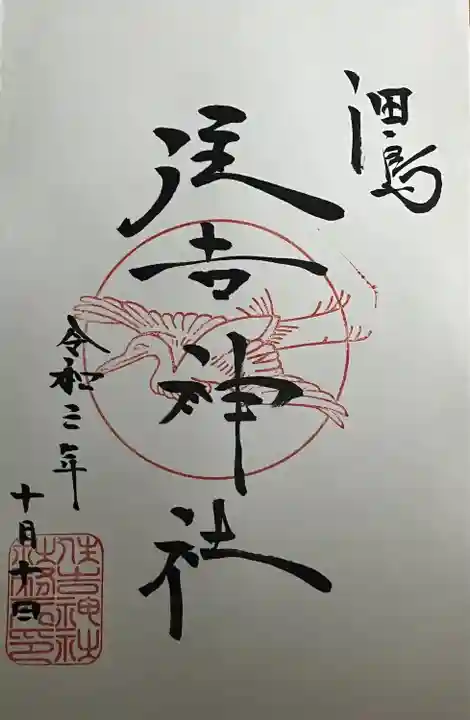 佃島
住吉神社
令和三年
十月十四
住吉神社
社務所印